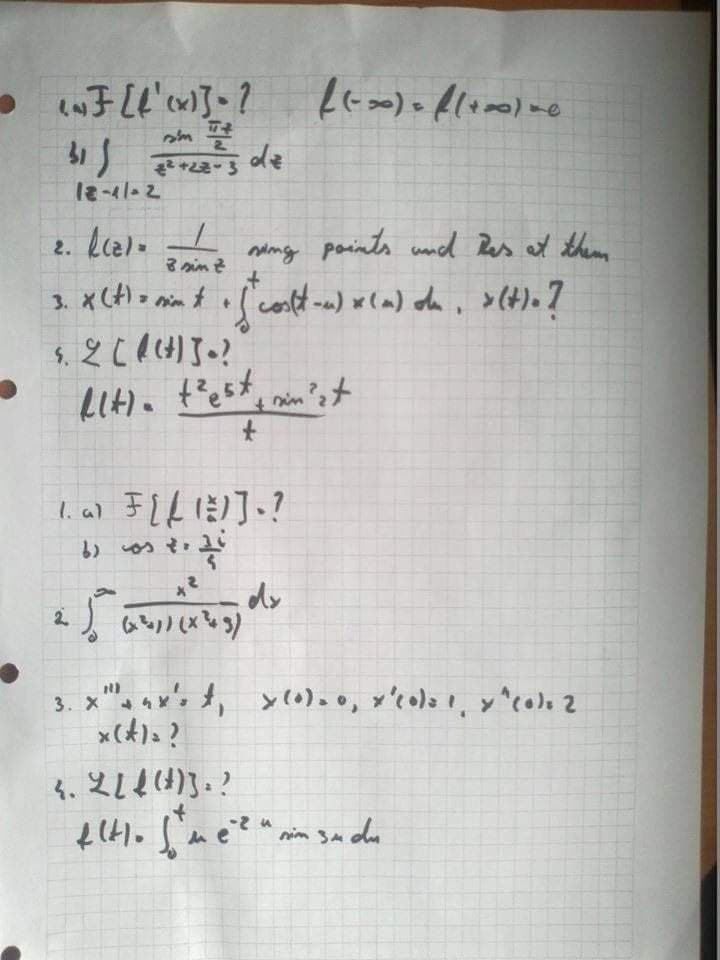 1. a) F[f'(x)] = ? f(-∞) = f(+∞) = 0
b) ∫ sin πz/2 / z²+2z-3 dz
|z-1|=2
2. f(z) = 1 / z sin z sing points and Res at them
3. x(t) = sin t + ∫₀ᵗ cos(t-u) x(u) du, x(t) = ?
4. L[f(t)] = ?
f(t) = t²e^5t + sin²2t / t
1. a) F[f(x/a)] = ?
b) cos z = 3i/4
2. ∫₀^∞ x² / (x²+1)(x²+9) dx
3. x''' + 4x' = t, x(0)=0, x'(0)=1, x''(0)=2
x(t) = ?
4. L[f(t)] = ?
f(t) = ∫₀ᵗ u e^-2u sin 3u du